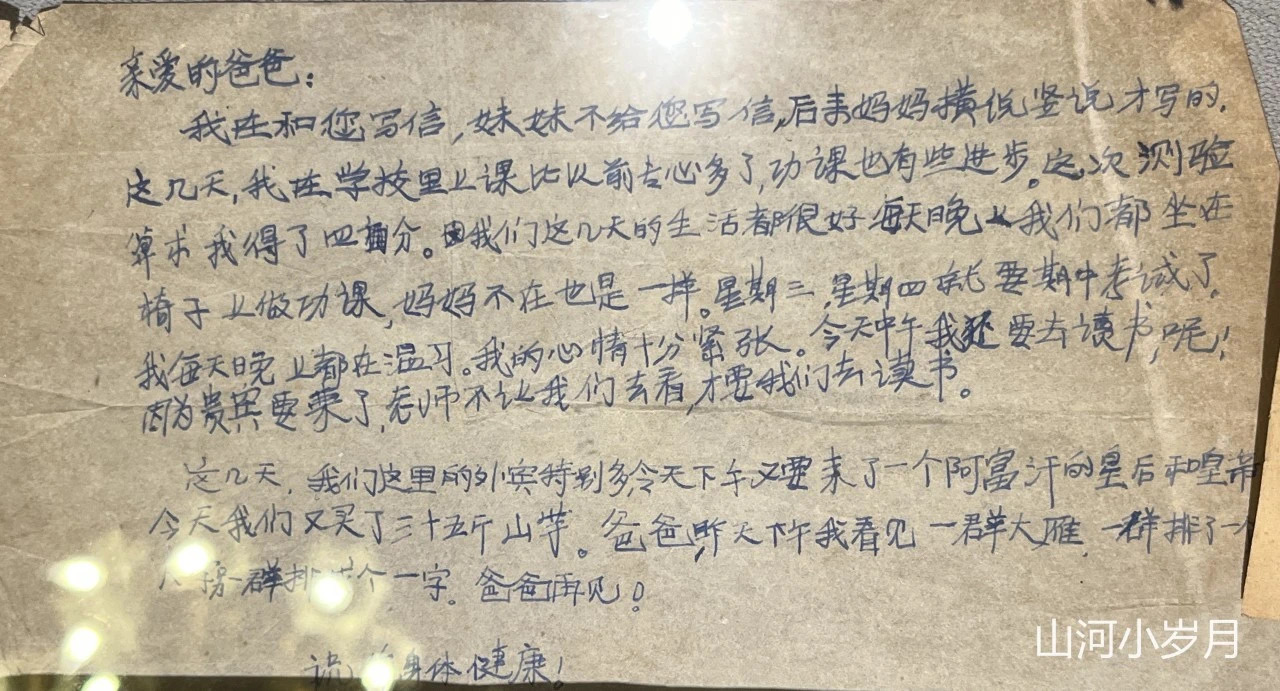 亲爱的爸爸：
我在和您写信，妹妹不给您写信，后来妈妈横说竖说才写的，
这几天，我在学校里上课比以前专心多了，功课也有些进步。这次测验
算术我得了四分。我们这几天的生活都很好每天晚上我们都坐在
椅子上做功课，妈妈不在也是一样。星期三，星期四就要期中考试了，
我每天晚上都在温习。我的心情十分紧张。今天中午我还要去读书，呢！
因为贵宾要来了，老师不让我们去看，才要我们去读书。
这几天，我们这里的外宾特别多，今天下午又要来了一个阿富汗的皇后和皇帝
今天我们又买了三十五斤山芋。爸爸，昨天下午我看见一群大雁，一群排了一个
一群排成个一字。爸爸再见！
祝身体健康！
山河小岁月